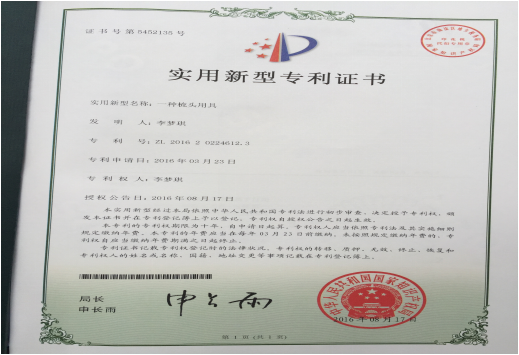 证书号第5452135号
实用新型专利证书
实用新型名称：一种梳头用具
发 明 人：李梦琪
专 利 号：ZL 2016 2 0224612.3
专利申请日：2016年03月23日
专 利 权 人：李梦琪
授权公告日：2016年08月17日
本实用新型经过本局依照中华人民共和国专利法进行初步审查，决定授予专利权，颁
发本证书并在专利登记簿上予以登记。专利权自授权公告之日起生效。
本专利的专利权期限为十年，自申请日起算。专利权人应当依照专利法及其实施细则
规定缴纳年费。本专利的年费应当在每年03月23日前缴纳。未按照规定缴纳年费的，专
利权自应当缴纳年费期满之日起终止。
专利证书记载专利权登记时的法律状况。专利权的转移、质押、无效、终止、恢复和
专利权人的姓名或名称、国籍、地址变更等事项记载在专利登记簿上。
局长
申长雨
申长雨
中华人民共和国国家知识产权局
2016年08月17日
第1页（共1页）